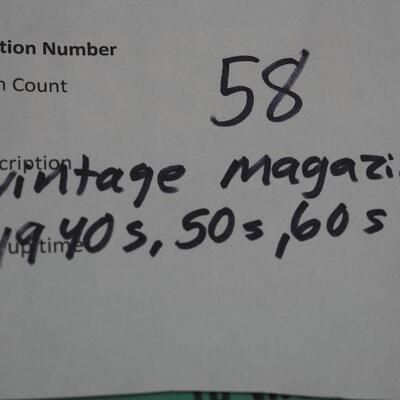 tion Number
58
n Count
cription
vintage magazi
up time
1940s, 50s, 60s